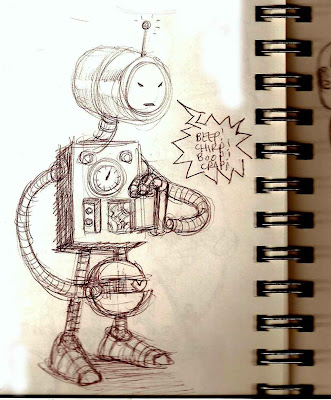 BEEP!
CHIRP!
BOOP!
CRAP!